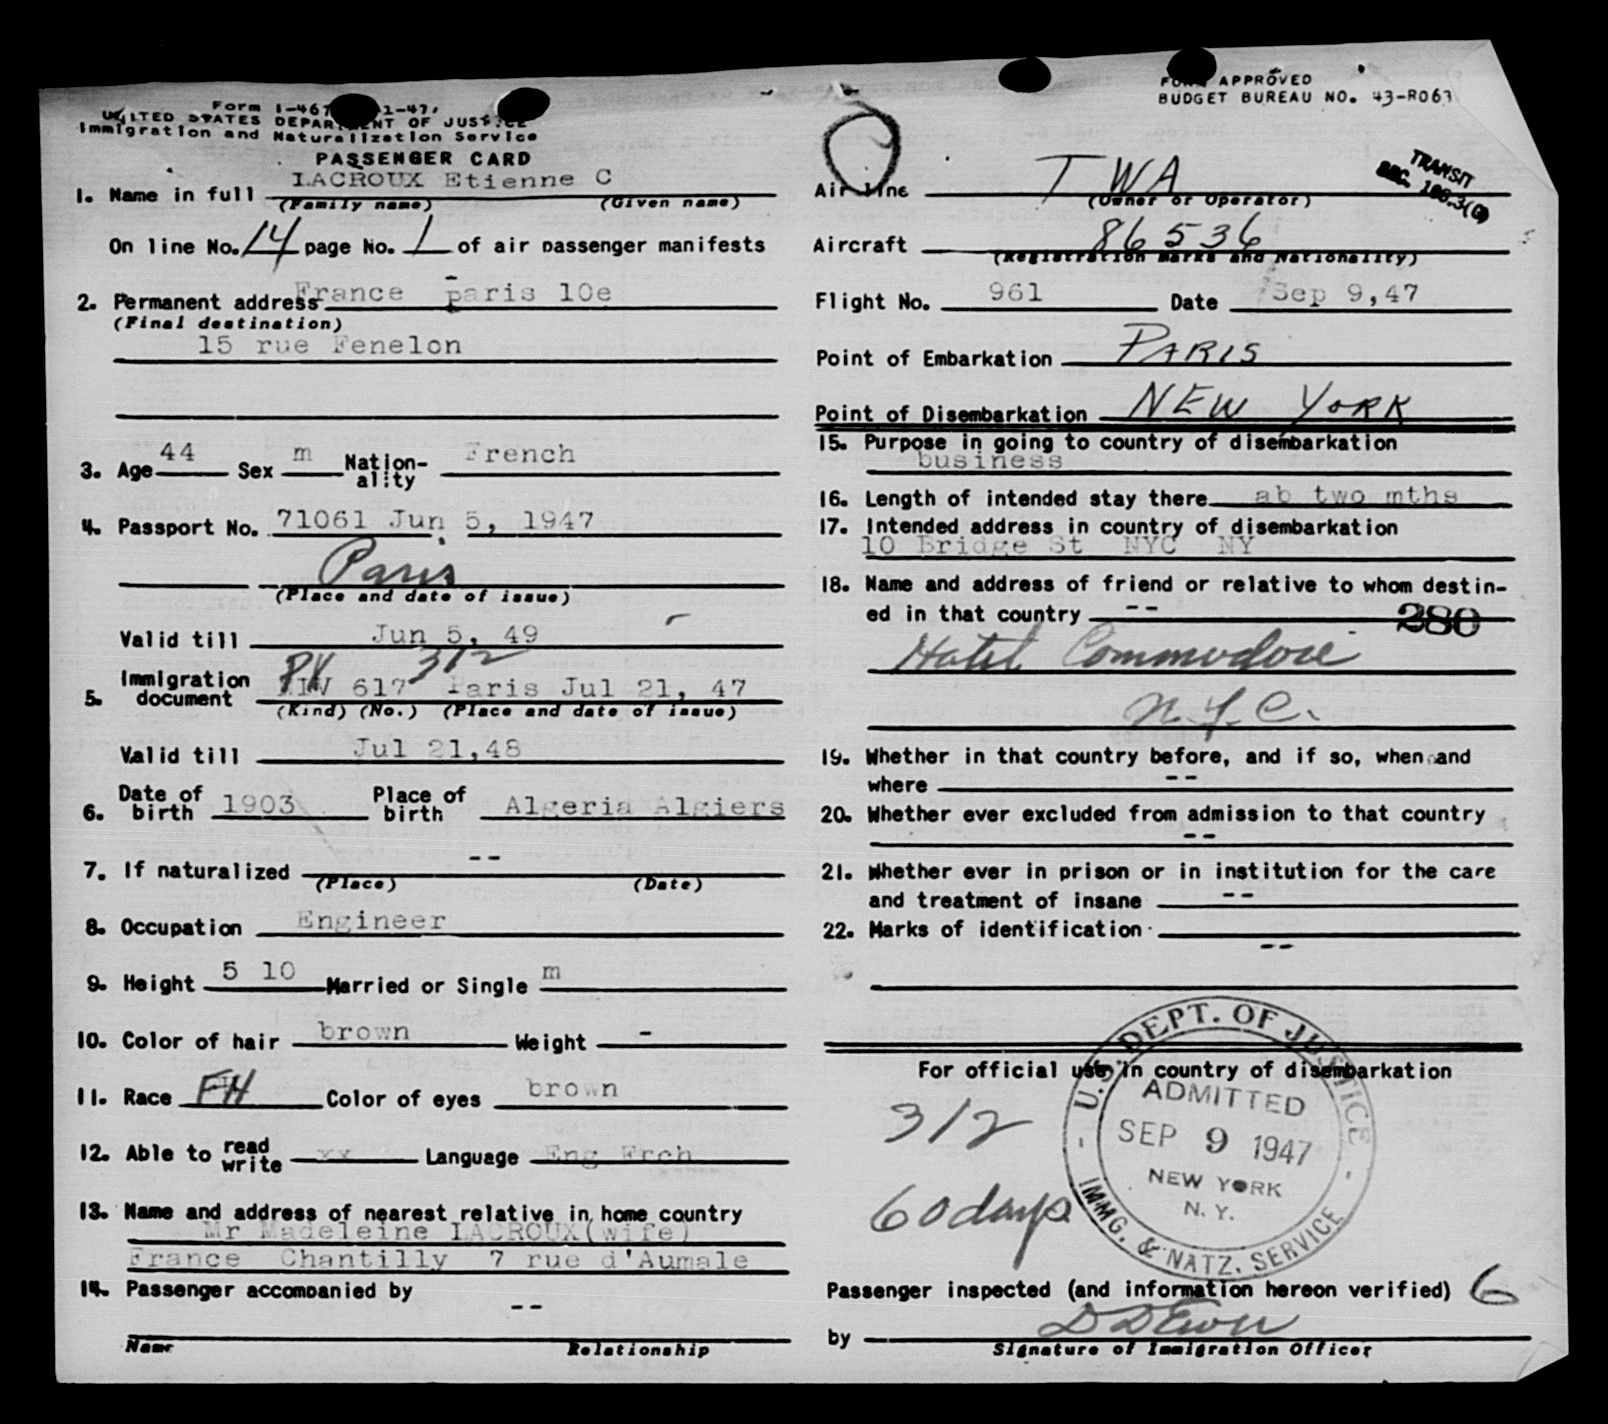 Form I-467 1-47,
UNITED STATES DEPARTMENT OF JUSTICE
Immigration and Naturalization Service
PASSENGER CARD
1. Name in full LACROUX Etienne C
(Family name) (Given name)
On line No. 14 page No. 1 of air passenger manifests
2. Permanent address France paris 10e
(Final destination)
15 rue Fenelon
3. Age 44 Sex m Nation-ality French
4. Passport No. 71061 Jun 5, 1947
Paris
(Place and date of issue)
Valid till Jun 5, 49
PV 312
5. Immigration document 617 Paris Jul 21, 47
(Kind) (No.) (Place and date of issue)
Valid till Jul 21,48
6. Date of birth 1903 Place of birth Algeria Algiers
7. If naturalized --
(Place) (Date)
8. Occupation Engineer
9. Height 5 10 Married or Single m
10. Color of hair brown Weight -
11. Race FH Color of eyes brown
12. Able to read write xx Language Eng Frch
13. Name and address of nearest relative in home country
Mr Madeleine LACROUX(wife)
France Chantilly 7 rue d'Aumale
14. Passenger accompanied by
--
Name Relationship
FORM APPROVED
BUDGET BUREAU NO. 43-R063
TRANSIT
SEC.
Air line TWA
(Owner or Operator)
Aircraft 86536
(Registration Marks and Nationality)
Flight No. 961 Date Sep 9,47
Point of Embarkation PARIS
Point of Disembarkation NEW YORK
15. Purpose in going to country of disembarkation
business
16. Length of intended stay there ab two mths
17. Intended address in country of disembarkation
10 Bridge St NYC NY
18. Name and address of friend or relative to whom destin-
ed in that country --
280
Hotel Commodore
N.Y.C.
19. Whether in that country before, and if so, when and
where --
20. Whether ever excluded from admission to that country
--
21. Whether ever in prison or in institution for the care
and treatment of insane --
22. Marks of identification
--
For official use in country of disembarkation
U.S. DEPT. OF JUSTICE
ADMITTED
SEP 9 1947
NEW YORK
N. Y.
IMMG. & NATZ. SERVICE
312
60 days
Passenger inspected (and information hereon verified) 6
by
Signature of Immigration Officer